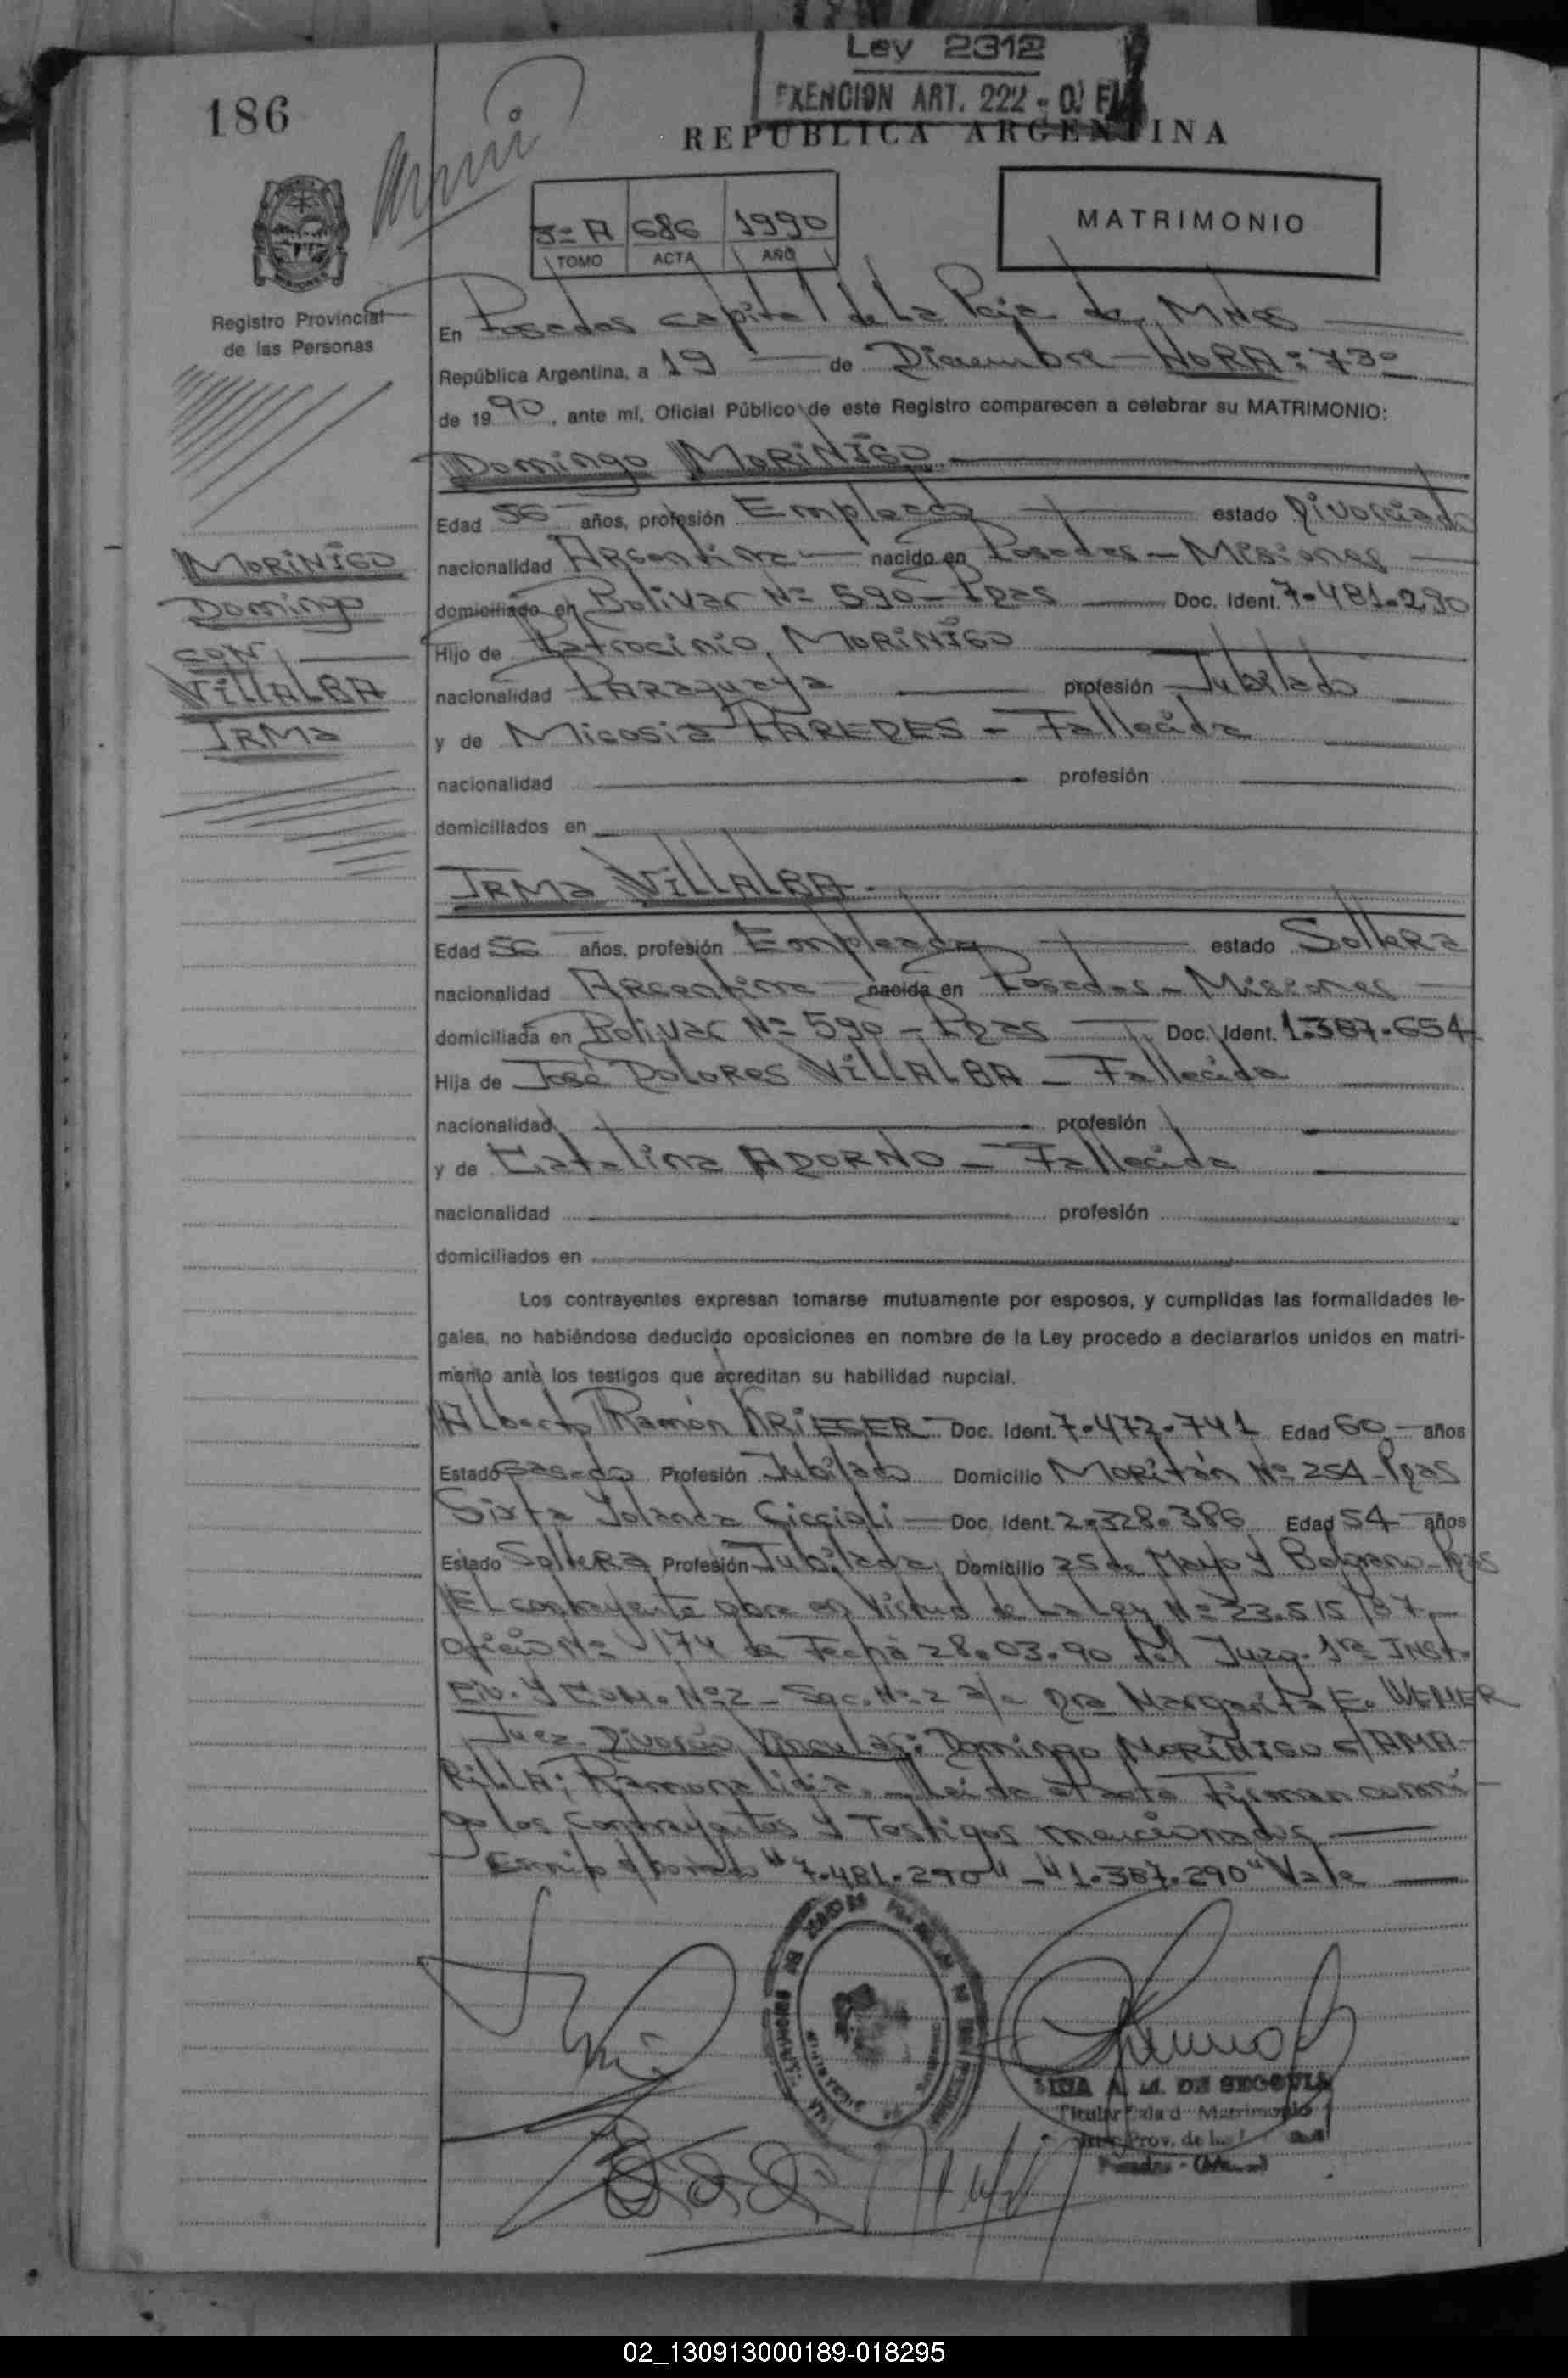 Ley 2312
EXENCION ART. 222 - O. F.
186
REPUBLICA ARGENTINA
3º A 686 1990
TOMO ACTA AÑO
MATRIMONIO
Registro Provincial
de las Personas
En Posadas capital de La Pcia de MNES
República Argentina, a 19 de Diciembre - HORA: 730
de 1990, ante mí, Oficial Público de este Registro comparecen a celebrar su MATRIMONIO:
Domingo MORINIGO
Edad 56 años, profesión Empleado estado Divorciado
nacionalidad Argentina nacido en Posadas - Misiones
domiciliado en Bolivar Nº 590 - Pdas Doc. Ident. 7.481.290
Hijo de Patrocinio MORINIGO
nacionalidad Paraguaya profesión Jubilado
y de Nicosia PAREDES - Fallecida
nacionalidad profesión
domiciliados en
MORINIGO
Domingo
CON
VILLALBA
IRMa
IRMa VILLALBA
Edad 56 años, profesión Empleada estado Soltera
nacionalidad Argentina nacida en Posadas - Misiones
domiciliada en Bolivar Nº 590 - Pdas Doc. Ident. 1.387.654
Hija de José Dolores VILLALBA - Fallecido
nacionalidad profesión
y de Catalina ADORNO - Fallecida
nacionalidad profesión
domiciliados en
Los contrayentes expresan tomarse mutuamente por esposos, y cumplidas las formalidades le-
gales, no habiéndose deducido oposiciones en nombre de la Ley procedo a declararlos unidos en matri-
monio ante los testigos que acreditan su habilidad nupcial.
Alberto Ramón KRIEGER Doc. Ident. 7.472.741 Edad 60 años
Estado Casado Profesión Jubilado Domicilio Moritán Nº 254 - Pdas
Sixta Yolanda Ciccioli Doc. Ident. 2.328.386 Edad 54 años
Estado Soltera Profesión Jubilada Domicilio 25 de Mayo y Belgrano - Pdas
El contrayente obra en virtud de La Ley Nº 23.515/87
Oficio Nº 174 de Fecha 28.03.90 del Juzg. 1ra INST.
Civ. y Com. Nº 2 - Sec. Nº 2 a/c Dra Margarita E. WEMER
Juez Divorcio Vincular: Domingo MORINIGO c/ AMA-
RILLA; Ramona Lidia. Leída el acta Firman conmi
go los contrayentes y Testigos mencionados
"7.481.290" - "1.387.290" Vale
A. M. DE SEGOVIA
Titular Sala d Matrimonio
Prov. de
Posadas
02_130913000189-018295